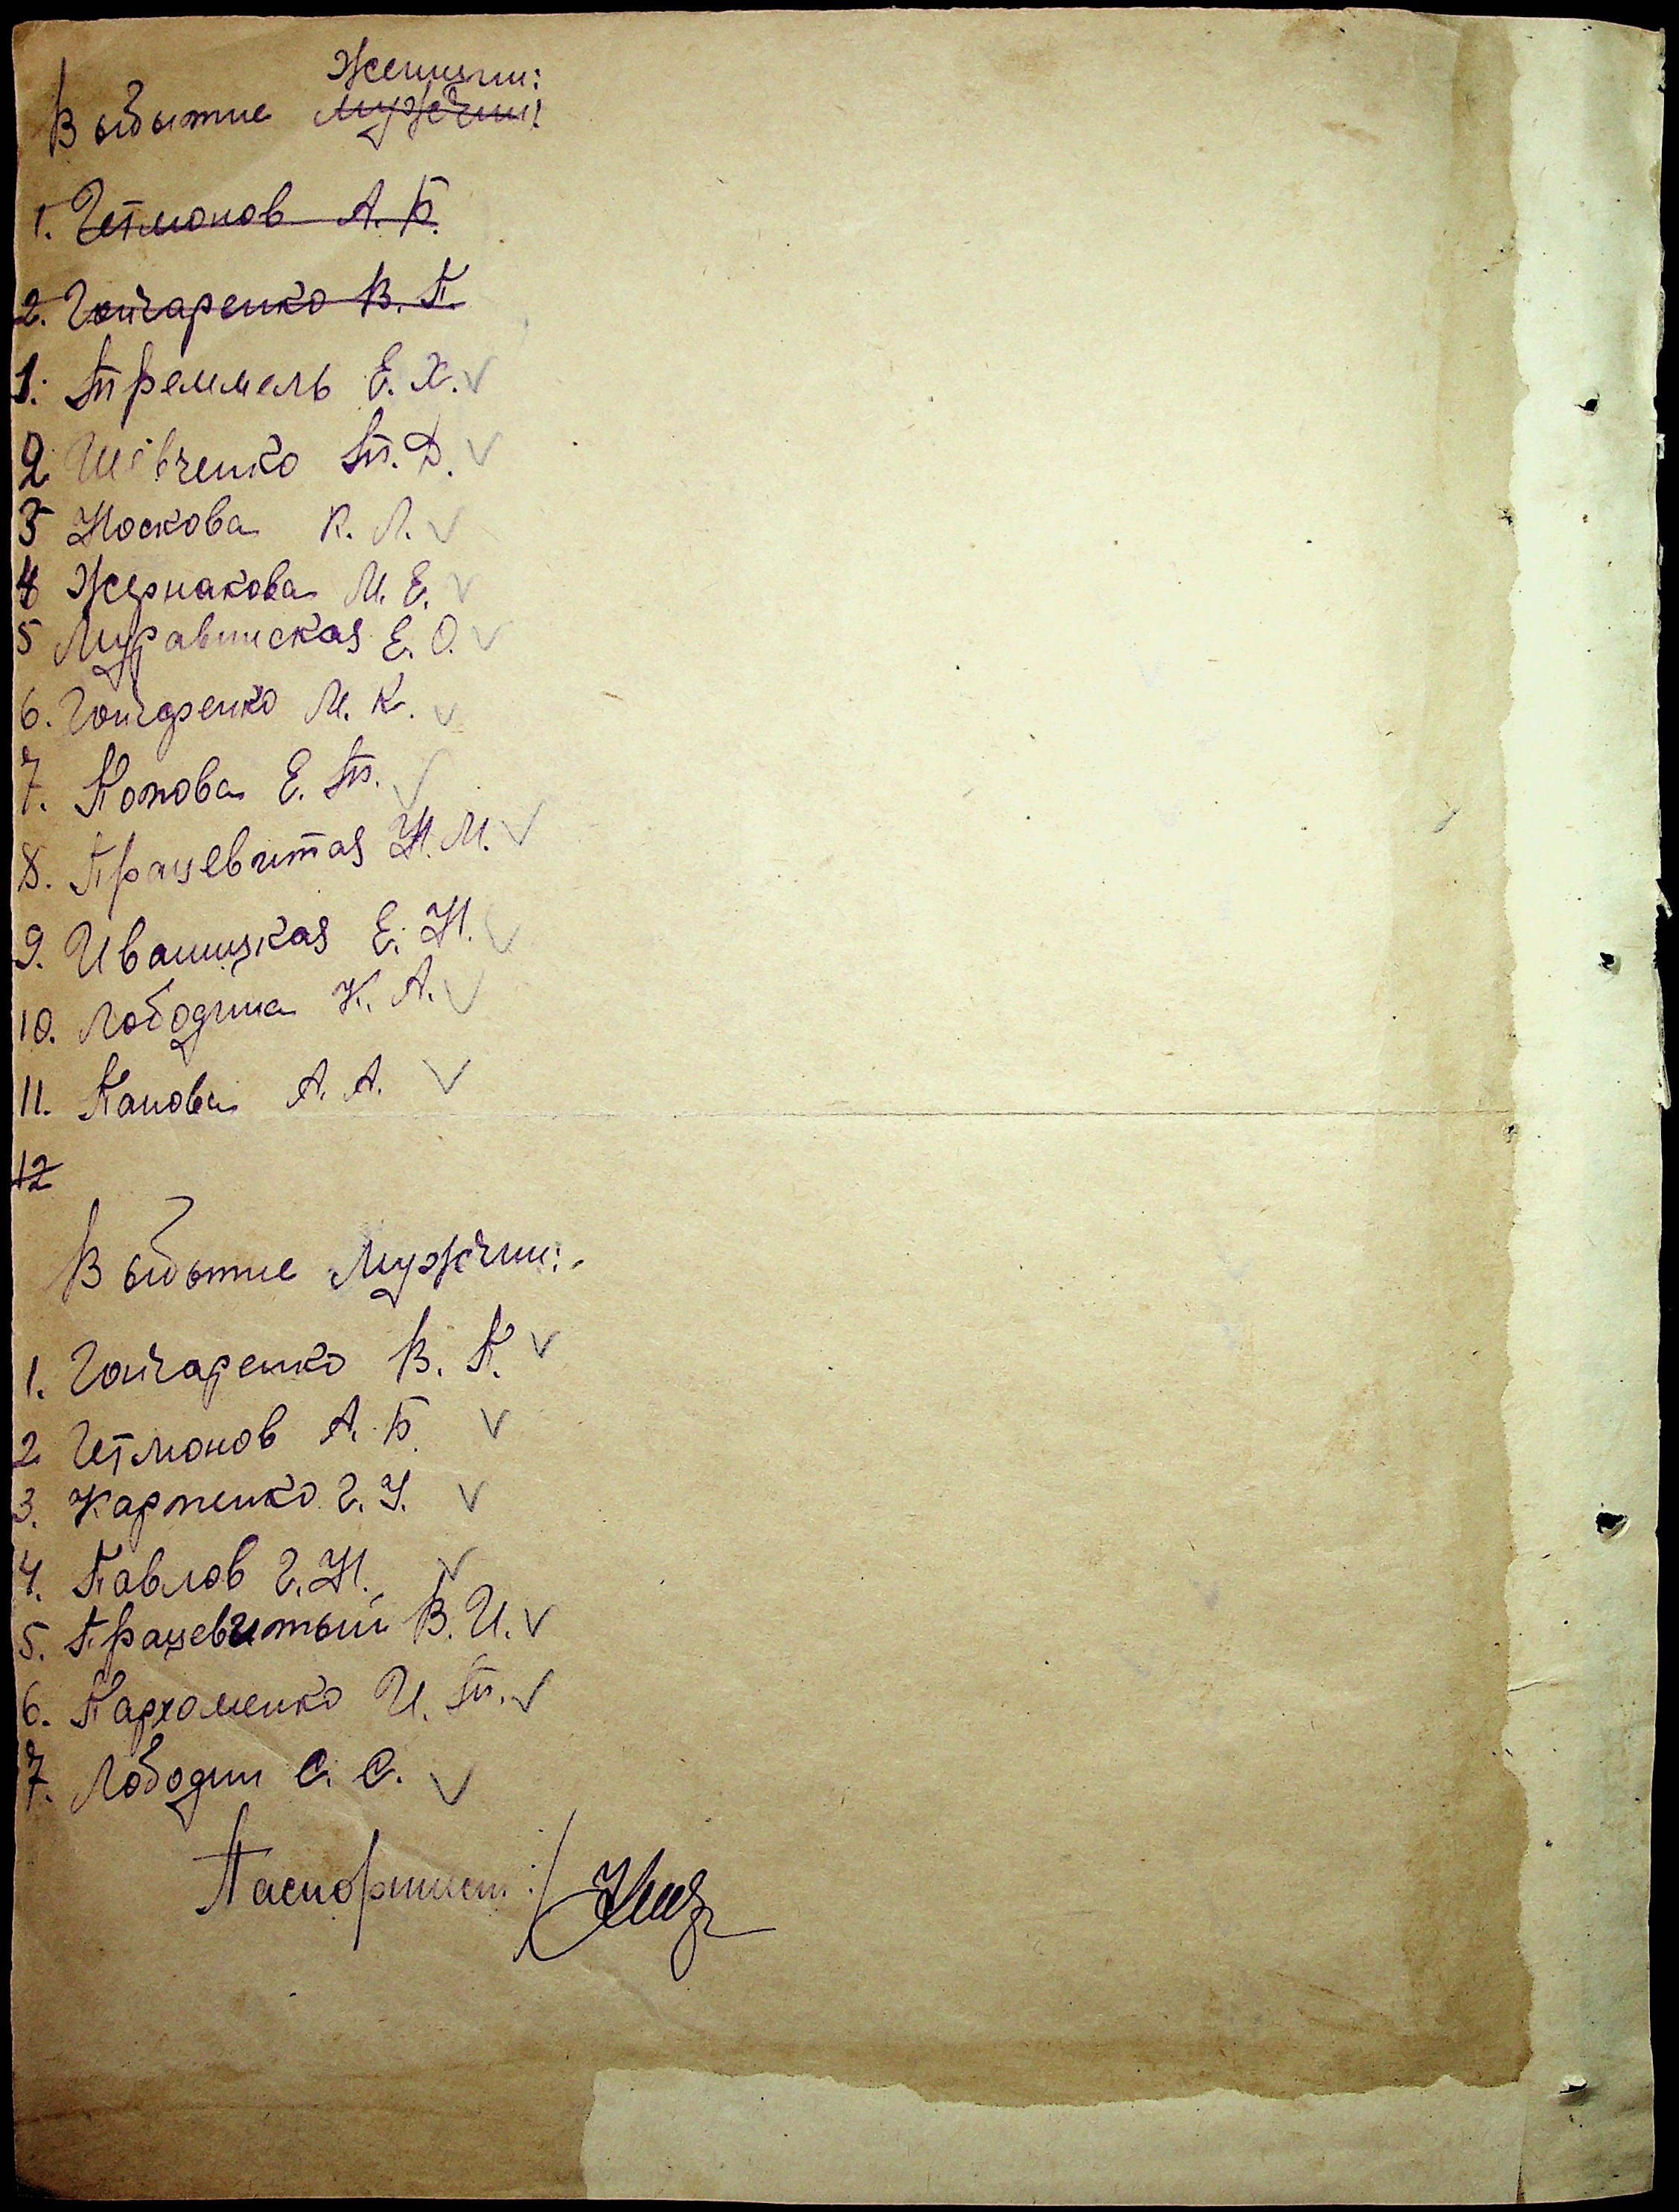 Женщин:
Выбытие мужчин:
1. Гетманов А. Б.
2. Гончаренко В. П.
1. Треммель Е. Х. ✓
2 Шевченко Т. Д. ✓
3 Носкова К. Л. ✓
4 Жернакова М. Е. ✓
5 Муравинская Е. О. ✓
6. Гончаренко М. К. ✓
7. Попова Е. Т. ✓
8. Працевитая Н. М. ✓
9. Иваницкая Е. Н. ✓
10. Лободина К. А. ✓
11. Панова А. А. ✓
12
Выбытие Мужчин:
1. Гончаренко В. П. ✓
2 Гетманов А. Б. ✓
3. Карпенко Г. У. ✓
4. Павлов Г. Н. ✓
5. Працевитый В. И. ✓
6. Пархоменко И. Т. ✓
7. Лободин С. С. ✓
Паспортист: